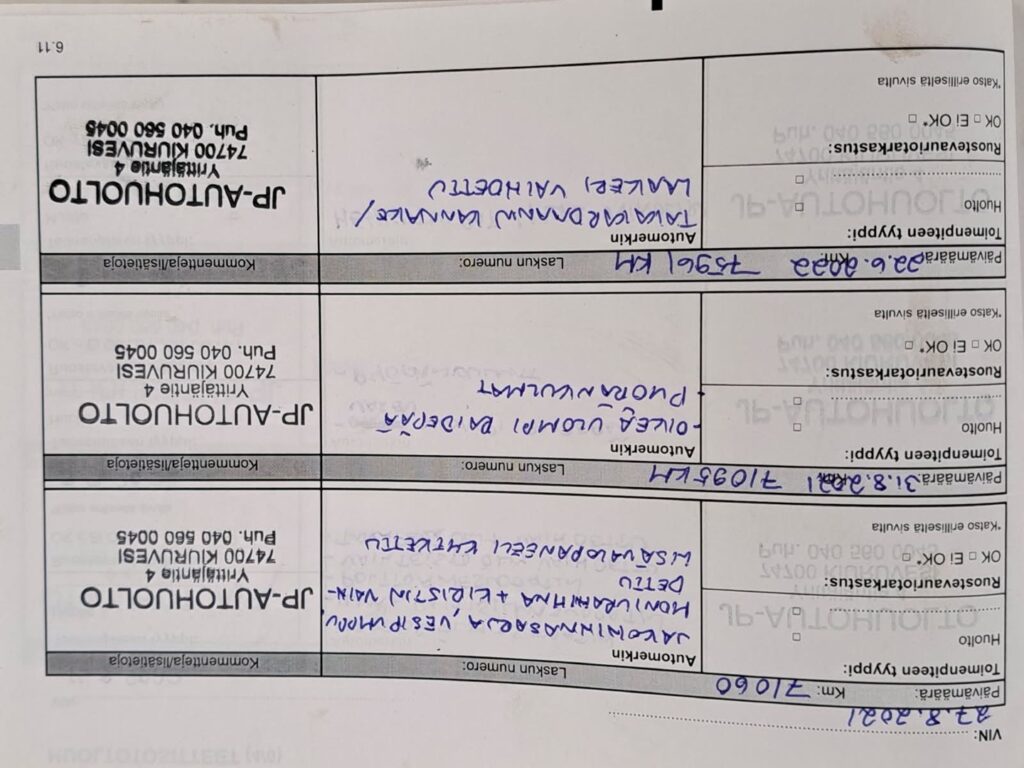 VIN:
27.8.2021
Päivämäärä: Km: 71060
Laskun numero:
Kommentteja/lisätietoja
Toimenpiteen tyyppi:
Huolto □
□
Ruostevauriotarkastus:
OK □ Ei OK* □
*Katso erilliseltä sivulta
Automerkin
JAKOHIHNASARJA, VESIPUMPPU
MONIURAHIHNA + KIRISTIN VAIH-
DETTU
LISÄVALOPANEELI KYTKETTU
JP-AUTOHUOLTO
Yrittäjäntie 4
74700 KIURUVESI
Puh. 040 560 0045
Päivämäärä: 31.8.2021 Km: 71095 KM
Laskun numero:
Kommentteja/lisätietoja
Toimenpiteen tyyppi:
Huolto □
□
Ruostevauriotarkastus:
OK □ Ei OK* □
*Katso erilliseltä sivulta
Automerkin
-OIKEA ULOMPI RAIDEPÄÄ
- PYÖRÄNKULMAT
JP-AUTOHUOLTO
Yrittäjäntie 4
74700 KIURUVESI
Puh. 040 560 0045
Päivämäärä: 22.6.2022 Km: 75961 KM
Laskun numero:
Kommentteja/lisätietoja
Toimenpiteen tyyppi:
Huolto □
□
Ruostevauriotarkastus:
OK □ Ei OK* □
*Katso erilliseltä sivulta
Automerkin
TAKAKARDAANIN KANNAKE/
LAAKERI VAIHDETTU
JP-AUTOHUOLTO
Yrittäjäntie 4
74700 KIURUVESI
Puh. 040 560 0045
6.11